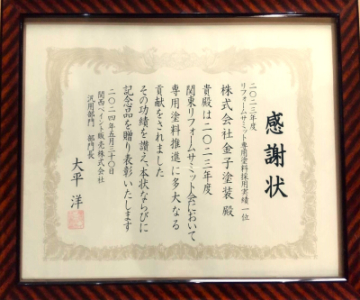 感謝状
二〇二三年度
リフォームサミット専用塗料採用実績一位
株式会社金子塗装殿
貴殿は二〇二三年度
関東リフォームサミット会において
専用塗料推進に多大なる
貢献をされました
その功績を讃え、本状ならびに
記念品を贈り表彰いたします
二〇二四年五月二十〇日
関西ペイント販売株式会社
汎用部門 部門長
大平洋